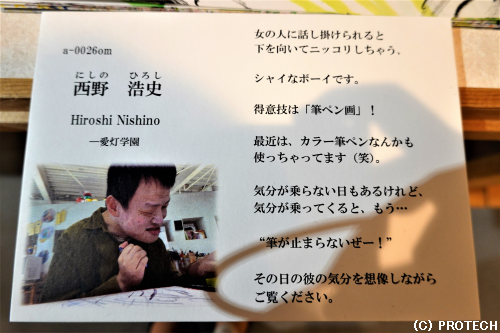 a-0026om
にしの ひろし
西野 浩史
Hiroshi Nishino
―愛灯学園
女の人に話し掛けられると
下を向いてニッコリしちゃう、
シャイなボーイです。
得意技は「筆ペン画」！
最近は、カラー筆ペンなんかも
使っちゃってます（笑）。
気分が乗らない日もあるけれど、
気分が乗ってくると、もう…
“筆が止まらないぜー！”
その日の彼の気分を想像しながら
ご覧ください。
(C) PROTECH